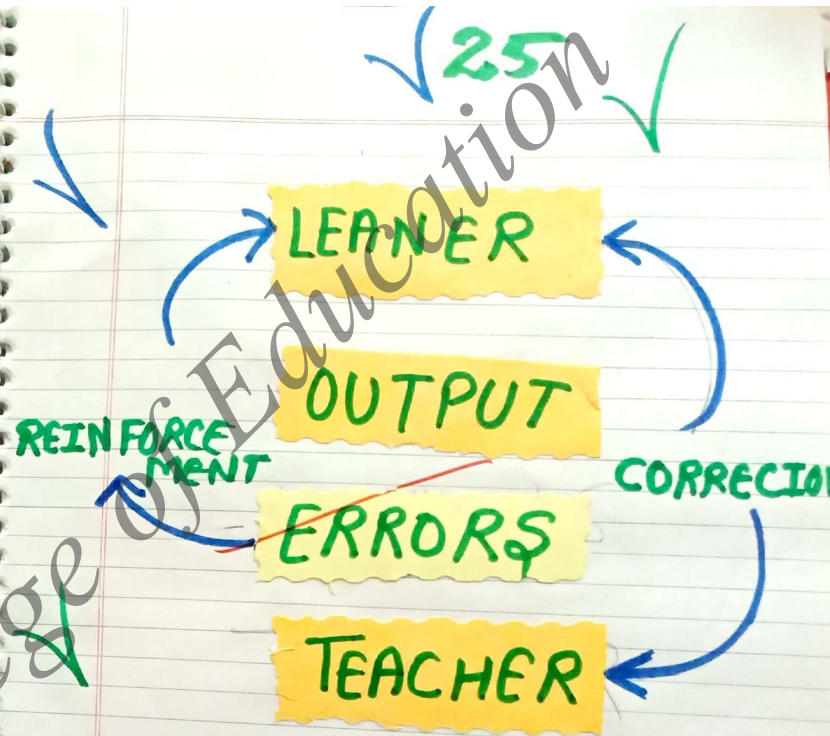 25
LEANER
OUTPUT
REINFORCE
MENT
CORRECIO
ERRORS
TEACHER
ge of Education